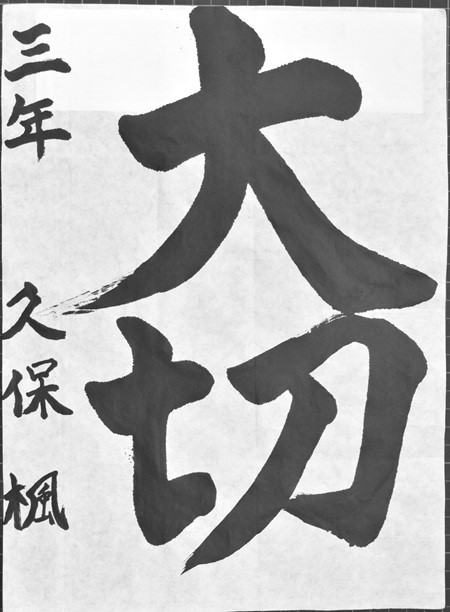 大切
三年 久保 楓